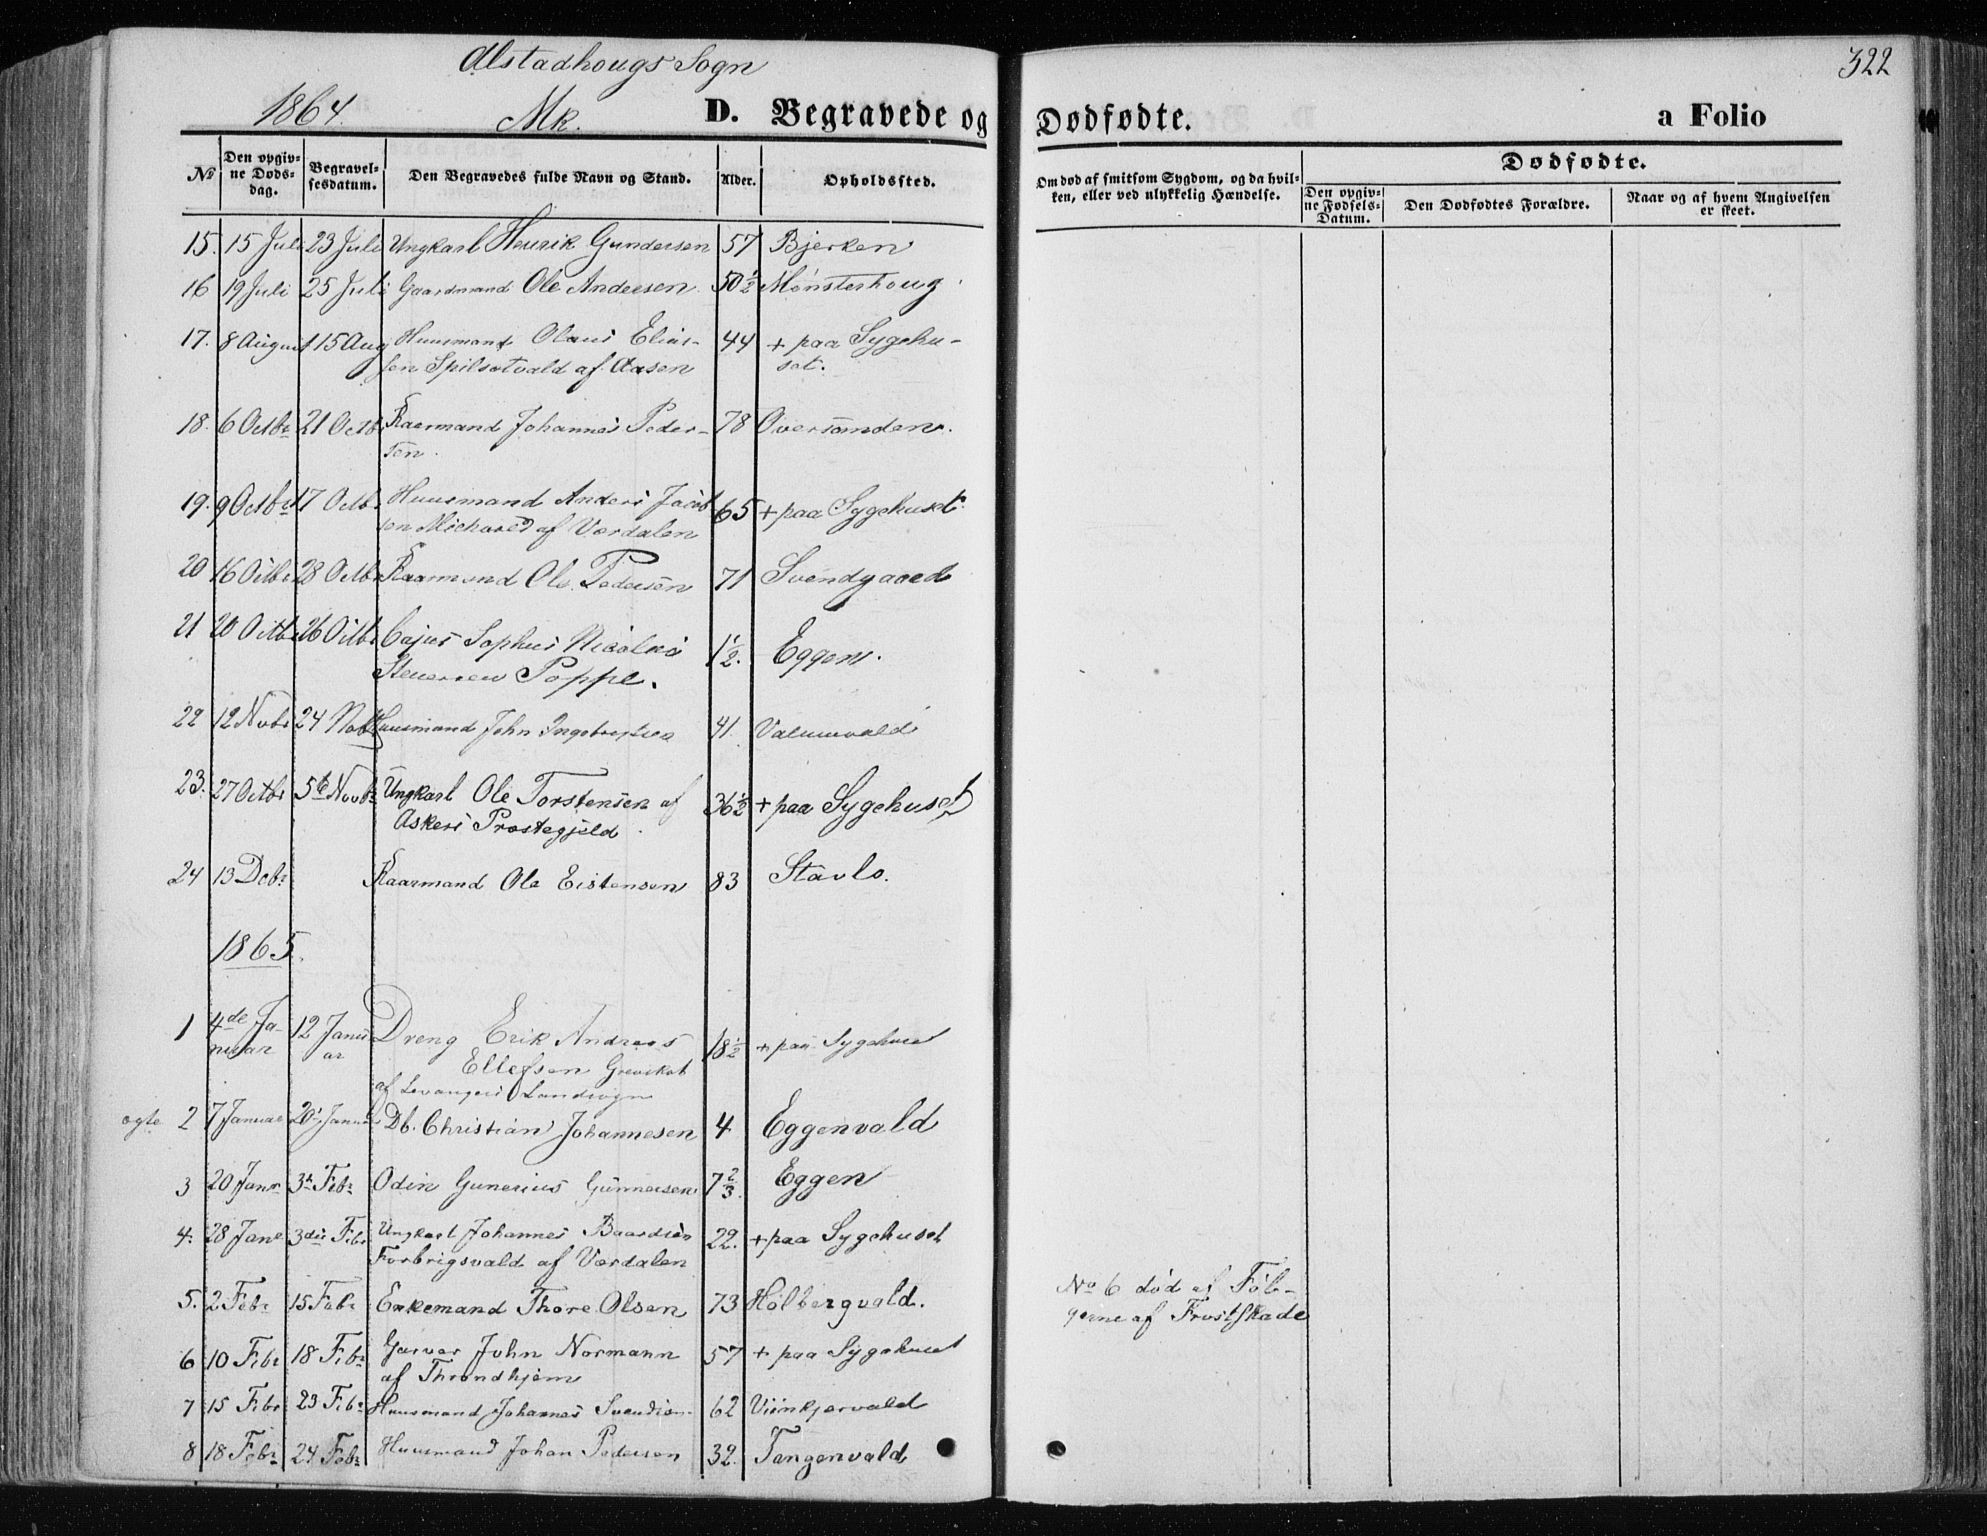 Alstadhougs Sogn
322
1864. Mk. D. Begravede og Dødfødte. a Folio
No Den opgivne Dødsdag. Begravelsesdatum. Den Begravedes fulde Navn og Stand. Alder. Opholdssted. Om død af smitsom Sygdom, og da hvilken, eller ved ulykkelig Hændelse. Dødfødte. Den opgivne Fødsels-Datum. Den Dødfødtes Forældre. Naar og af hvem Angivelsen er skeet.
15. 15 Juli 23 Juli Ungkarl Henrik Gundersen 57 Bjerken
16 19 Juli 25 Juli Gaardmand Ole Andersen 50 1/2 Mønsterhoug
17. 8 August 15 Aug Huusmand Olaus Elias- 44 + paa Sygehu-
sen Spilsetvald af Aasen set.
18. 6 Octbr 21 Octb Kaarmand Johannes Peder- 78 Oversamden.
sen.
19. 9 Octbr 17 Octb Huusmand Anders Jacob 65 + paa Sygehuset.
sen af Værdalen
20 16 Octbr 28 Octb Kaarmand Ole Pedersen 71 Svendgaard
21 20 Octb 26 Octb Cajus Sophus Nicolai 1 1/2. Eggen.
Steuersen Poppe.
22 12 Novbr 24 Novb Huusmand John Ingebrigtsen 41. Valumvald
23. 27 Octbr 5te Novbr Ungkarl Ole Torstensen af 36 1/2 + paa Sygehuset
Askers Præstegjeld
24 13 Debr Kaarmand Ole Eistensen 83 Stavlo.
1865.
1 4de Ja- 12 Janu Dreng Erik Andreas 18 1/2 + paa Sygehuset
nuar ar Ellefsen Grevskot
af Levangers Landsogn
ægte 2 7 Januar 20 Januar Db. Christian Johannesen 4 Eggenvald
3 20 Janr 3de Febr Odin Gunerius Gunnersen 7 2/3. Eggen
4. 28 Janr 3die Febr Ungkarl Johannes Baardsen 22. + paa Sygehuset
Forbrigsvald af Værdalen
5. 2 Febr 15 Febr Enkemand Thore Olsen 73 Holbergvald. No 6 død af Føl-
gerne af Frostskade
6 10 Febr 18 Febr Garver John Normann 57 + paa Sygehuset
af Throndhjem
7 15 Febr 23 Febr Huusmand Johannes Svendsen 62
8 18 Febr 24 Febr Huusmand Johan Pedersen 32. Tangenvald